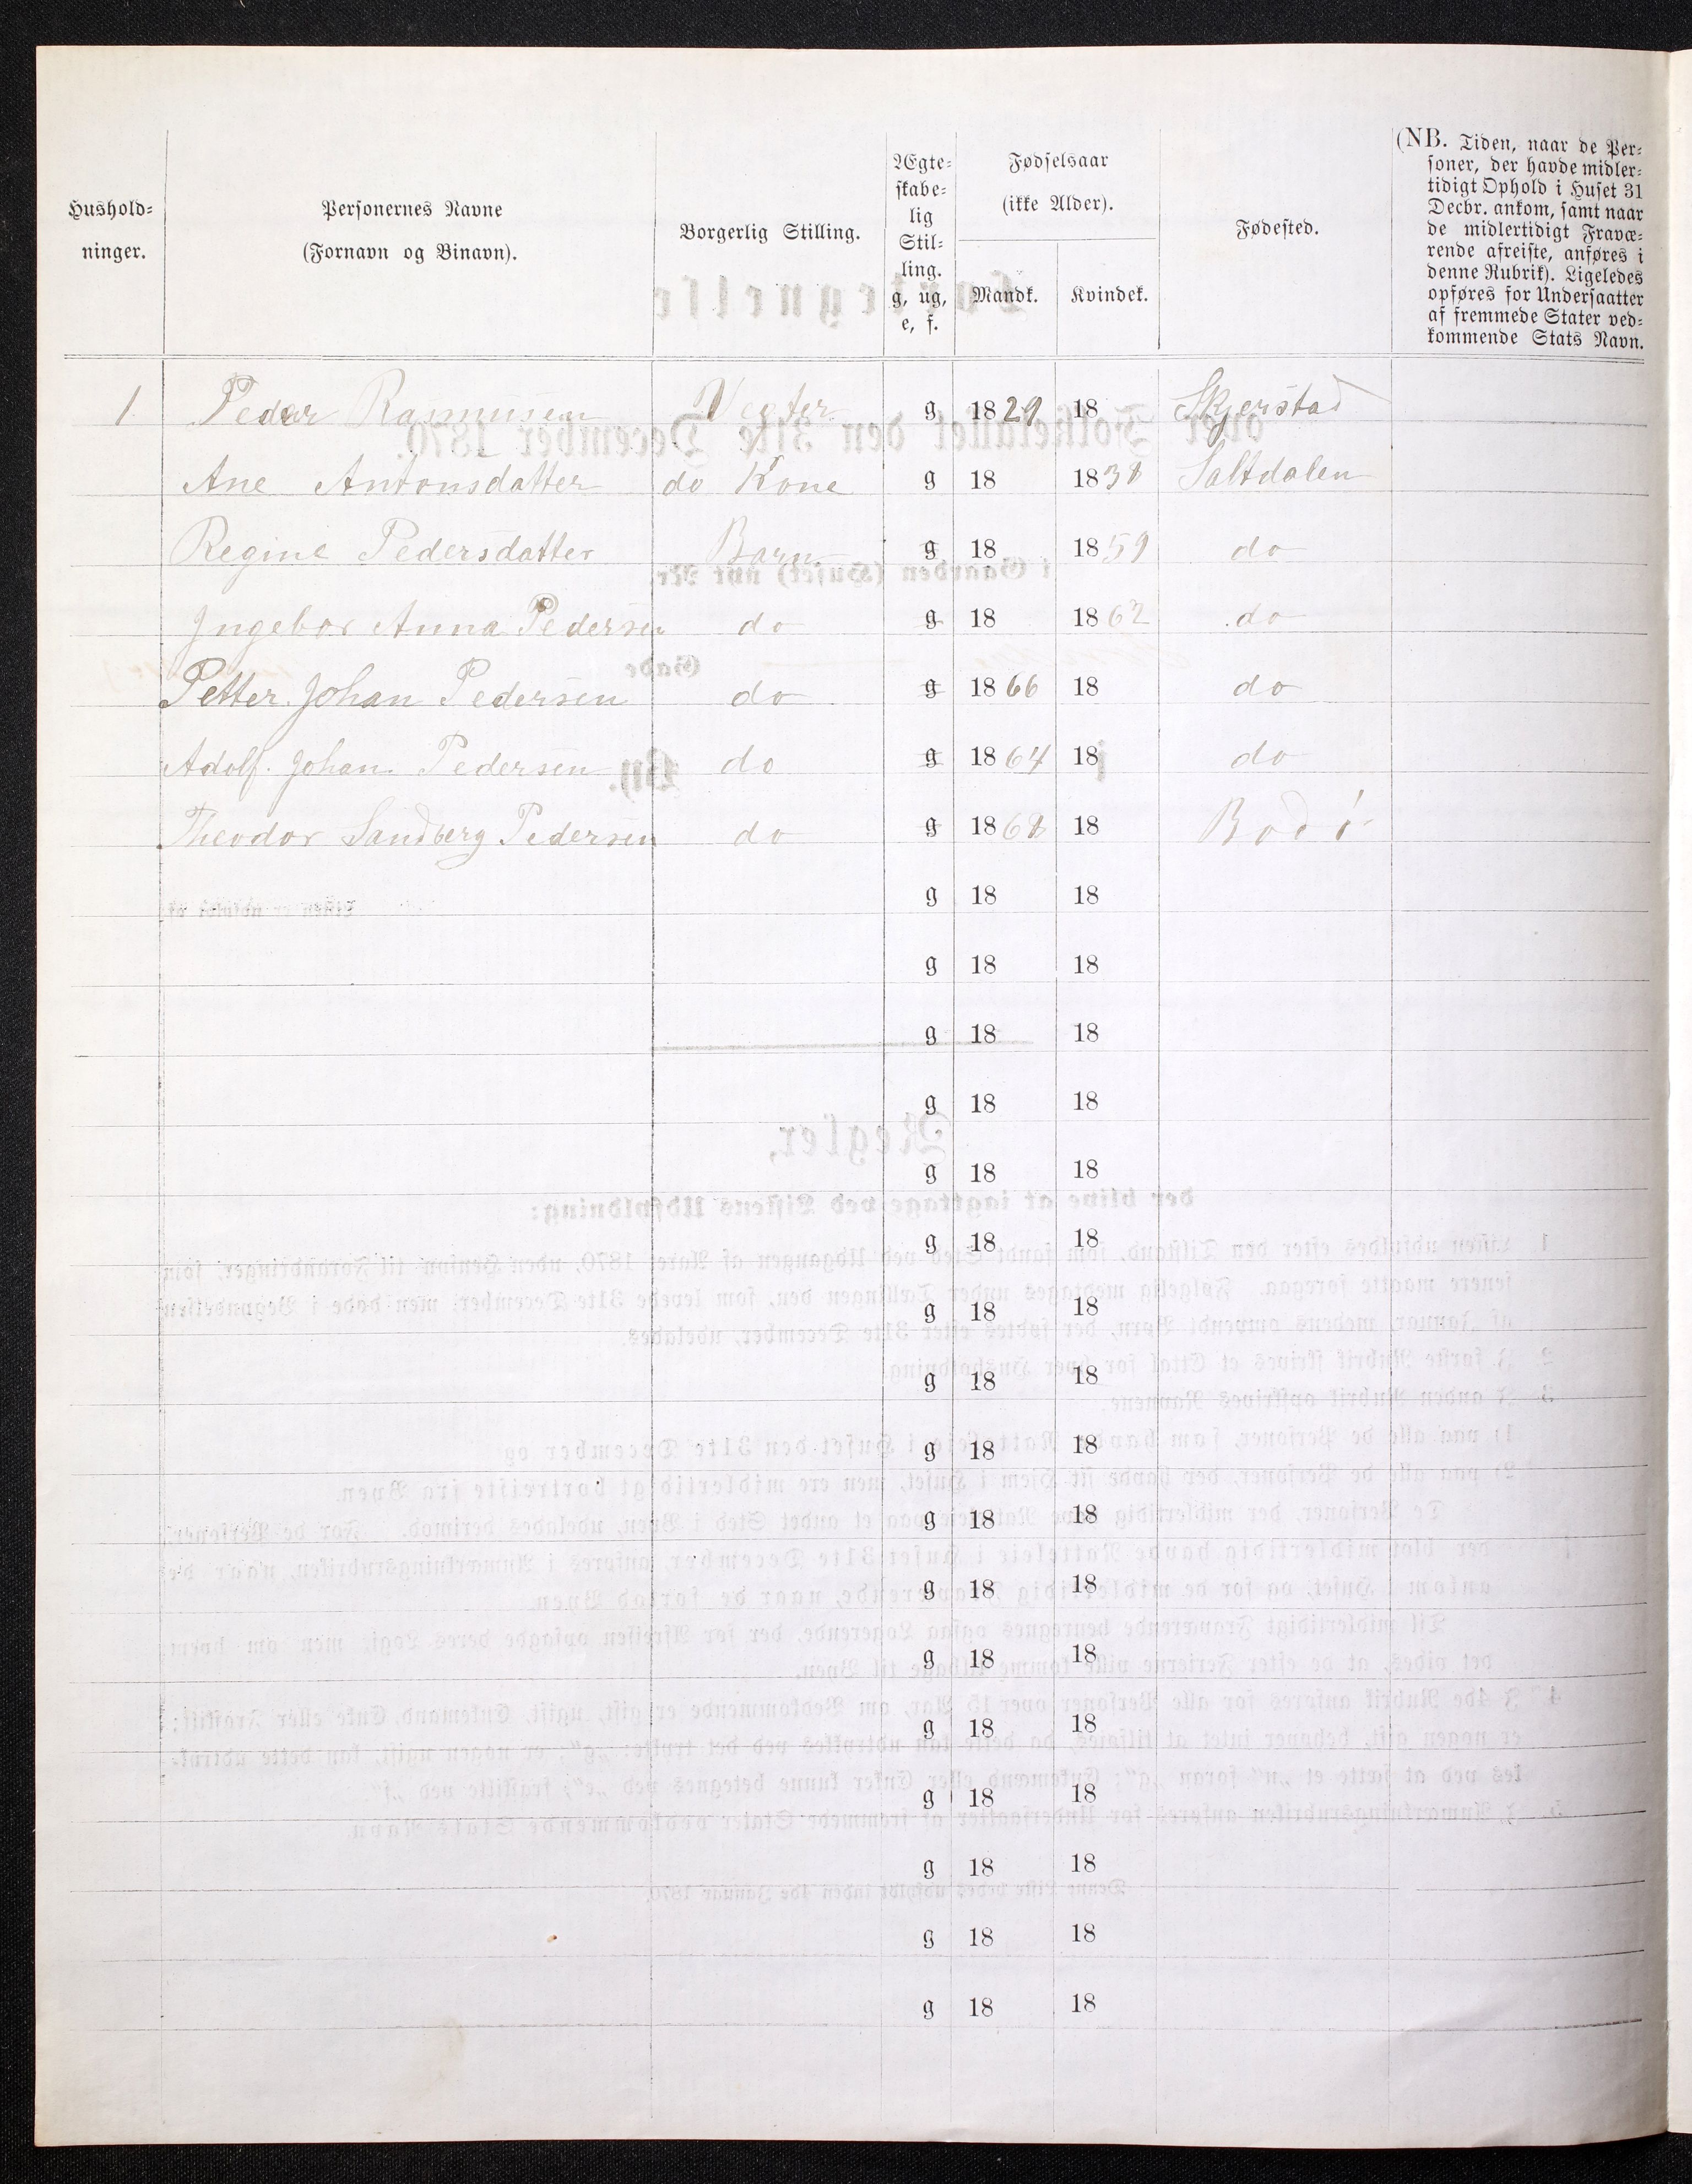 Hushold-
ninger.
Personernes Navne
(Fornavn og Binavn).
Borgerlig Stilling.
Ægte-
skabe-
lig
Stil-
ling.
g, ug,
e, f.
Fødselsaar
(ikke Alder).
Mandk. Kvindek.
Fødested.
(NB. Tiden, naar de Per-
soner, der havde midler-
tidigt Ophold i Huset 31
Decbr. ankom, samt naar
de midlertidigt Fravæ-
rende afreiste, anføres i
denne Rubrik). Ligeledes
opføres for Undersaatter
af fremmede Stater ved-
kommende Stats Navn.
1 Peder Rasmussen Vegter g 1829 18 Skjerstad
Ane Antonsdatter do Kone g 18 18 Saltdalen
Regine Pedersdatter Barn g 18 1859 do
Ingebor Anna Pedersen do g 18 1862 do
Petter Johan Pedersen do g 1866 18 do
Adolf Johan Pedersen do g 1864 18 do
Theodor Sandberg Pedersen do g 1868 18 Bodö
g 18 18
g 18 18
g 18 18
g 18 18
g 18 18
g 18 18
g 18 18
g 18 18
g 18 18
g 18 18
g 18 18
g 18 18
g 18 18
g 18 18
g 18 18
g 18 18
g 18 18